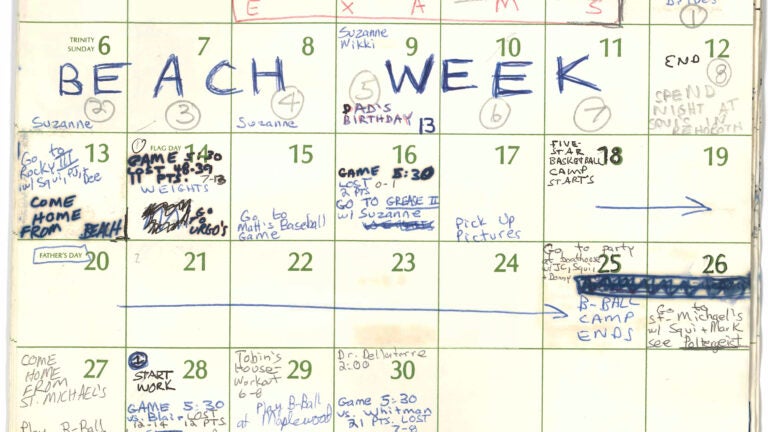 E X A M S
①
TRINITY
SUNDAY 6
7
8
Suzanne
Nikki
9
10
11
12
END
⑧
BEACH WEEK
②
③
④
⑤
⑥
⑦
SPEND
NIGHT AT
SQUIS IN
REHOBOTH
Suzanne
Suzanne
DAD'S
BIRTHDAY 13
13
Go to
Rocky III
w/ Squi, PJ,
COME
HOME
FROM BEACH
①
FLAG DAY 14
GAME 5:30
LOST 48-39
11 PTS. 7-13
WEIGHTS
GO
TO
URGO'S
15
Go to
Matt's Baseball
Game
16
GAME 5:30
LOST 0-1
2 PTS
GO TO GREASE II
w/ Suzanne
17
Pick Up
Pictures
FIVE-
STAR
BASKETBALL
CAMP
STARTS
18
19
FATHER'S DAY
20
21
22
23
24
Go to party
at boathouse
w/ JC, Squi,
+ Donny
25
B-BALL
CAMP
ENDS
26
Go to
St. Michael's
w/ Squi + Mark
see Poltergeist
COME
HOME
FROM
ST. MICHAEL'S
27
Play B-Ball
①
START
WORK
28
GAME 5:30
vs. Blair LOST
12-14 12 PTS
Tobin's
House-
Workout
6-8
29
Play B-Ball
at Maplewood
Dr. Dellatorre
2:00
30
Game 5:30
vs. Whitman
21 PTS. LOST
7-8